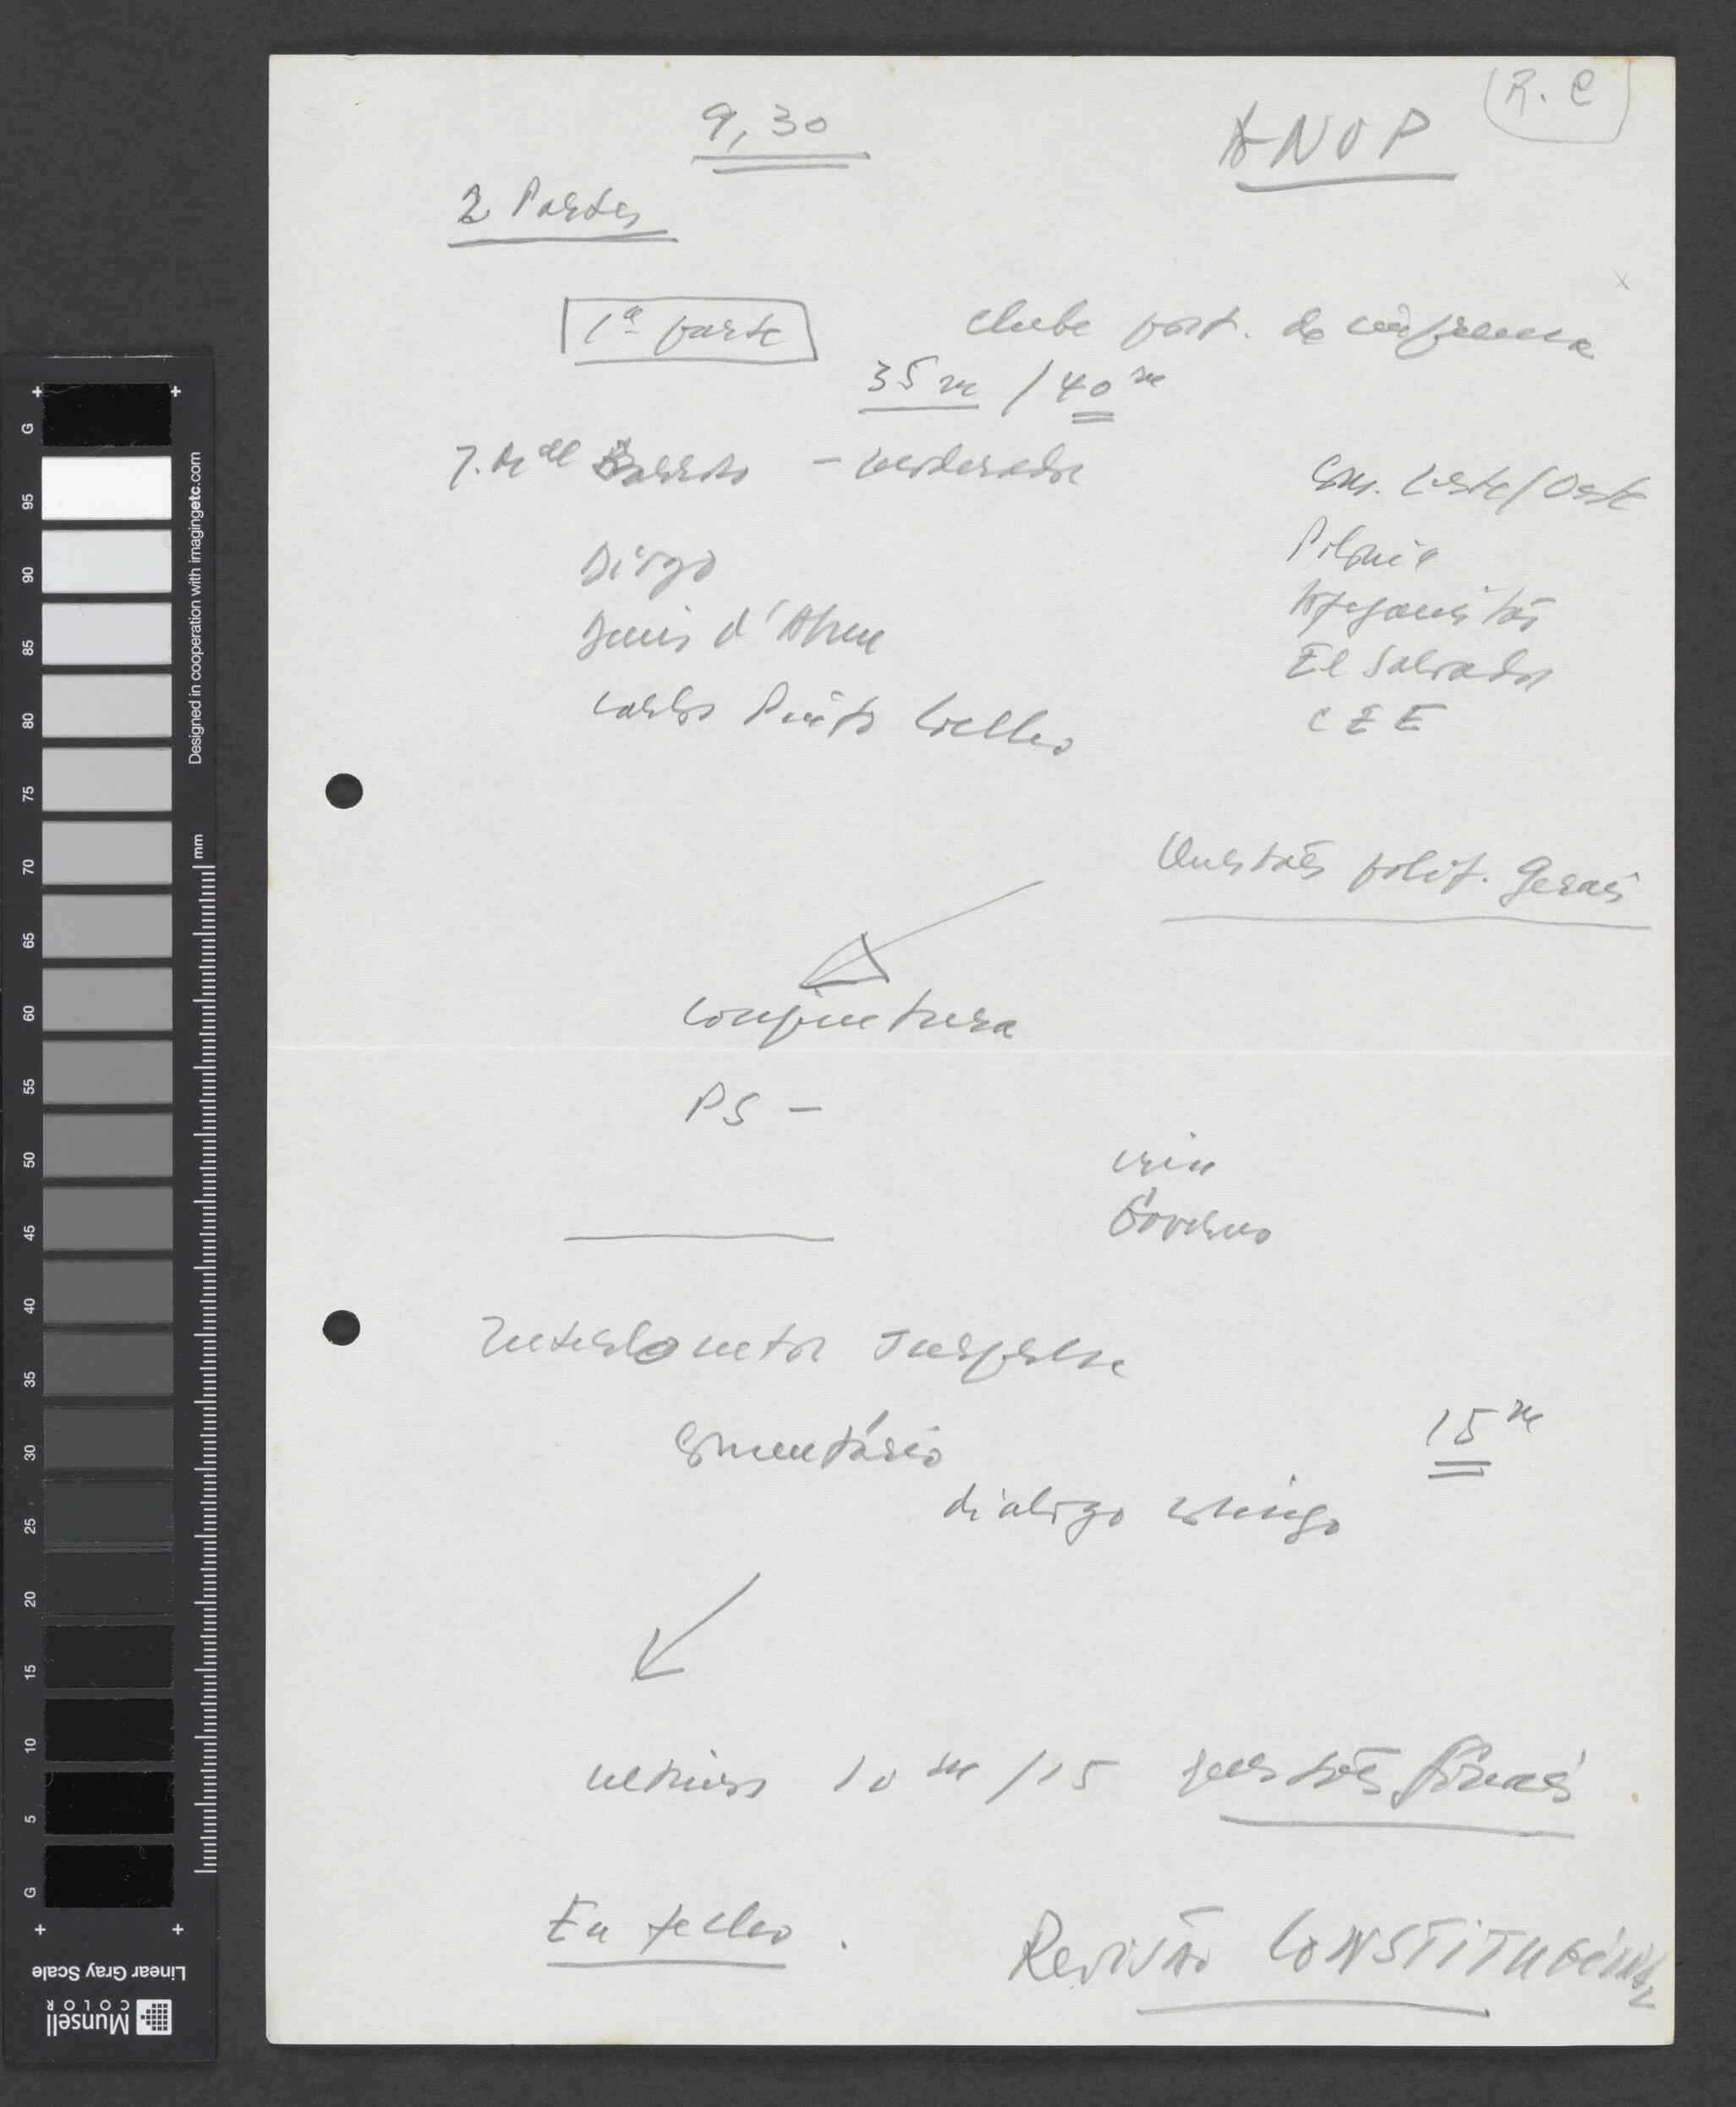 R. C
9,30
ANOP
2 Partes
1ª parte
clube port. de imprensa
35 m / 40 m
J. Mel Barroso - moderador
Com. Leste/Oeste
Diogo
Polónia
Dinis d'Abreu
Afeganistão
El Salvador
Carlos Pinto Coelho
CEE
Questões polít. Gerais
conjuntura
PS -
crise
Governo
Interlocutor surpresa
comentário
15 m
dialogo comigo
ultimos 10 m /15 questões finais
Eu fecho.
Revisão CONSTITUCIONAL
G
95
90
85
80
75
70
65
60
55
50
45
40
35
30
25
20
15
10
5
G
mm
Designed in cooperation with imagingetc.com
Linear Gray Scale
Munsell
COLOR